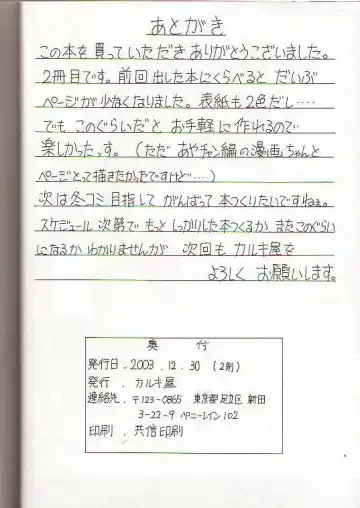 あとがき
この本を買っていただきありがとうございました。
2冊目です。前回出した本にくらべると だいぶ
ページが少なくなりました。表紙も2色だし‥‥
でも このぐらいだと お手軽に作れるので
楽しかったっす。(ただ あやチャン編の漫画 ちゃんと
ページとって描きたかったですけど‥‥)
次は冬コミ目指して がんばって 本つくりたいですねぇ。
スケジュール 次第で もっと しっかりした本つくるか またこのぐらい
になるか わかりませんが 次回も カルキ屋を
よろしく お願いします。
奥 付
発行日.2003.12.30 (2刷)
発行 . カルキ屋
連絡先.〒123-0865 東京都足立区 新田
3-22-9 ペニーレイン102
印刷 . 共信印刷